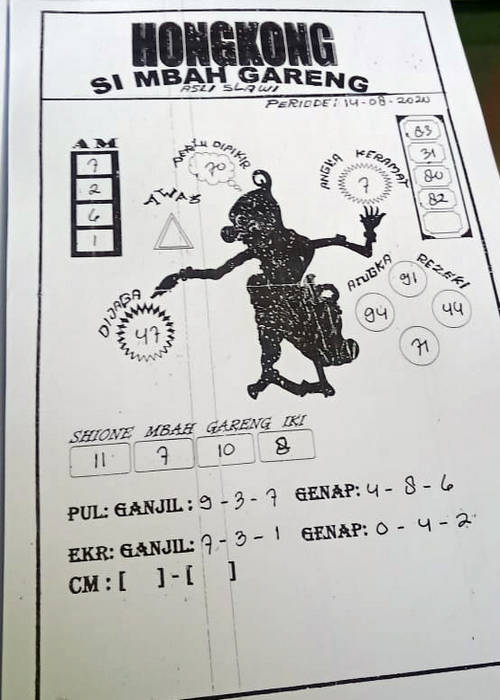 HONGKONG
SI MBAH GARENG
ASLI SLAWI
PERIODE: 14-08-2020
AM
7
2
6
1
PERLU DIPIKIR
70
AWAS
ANGKA KERAMAT
7
83
31
80
82
DIJAGA
47
ANGKA REZEKI
91
94
44
71
SHIONE MBAH GARENG IKI
11 7 10 8
PUL: GANJIL: 9 - 3 - 7 GENAP: 4 - 8 - 6
EKR: GANJIL: 7 - 3 - 1 GENAP: 0 - 4 - 2
CM : [ ] - [ ]